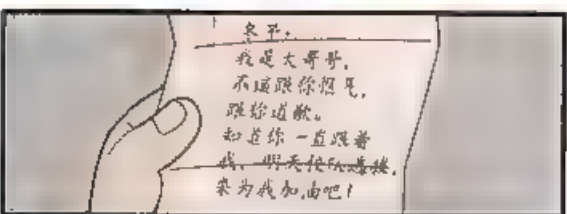 我是大哥哥,
不该跟你怄气,
跟你道歉。
知道你一直跟着
我,明天
来为我加油吧!